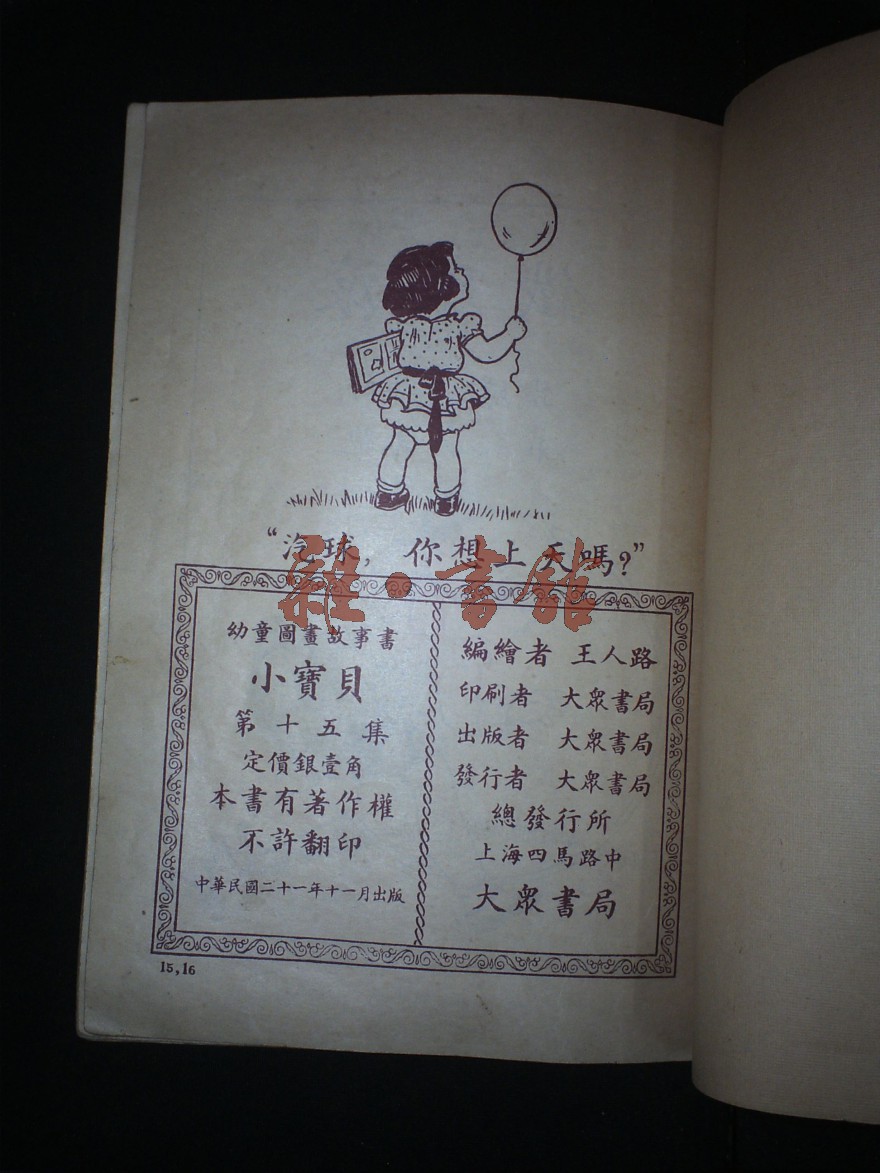 “汽球，你想上天嗎？”
雜·書館
幼童圖畫故事書
小寶貝
第十五集
定價銀壹角
本書有著作權
不許翻印
中華民國二十一年十一月出版
編繪者 王人路
印刷者 大眾書局
出版者 大眾書局
發行者 大眾書局
總發行所
上海四馬路中
大眾書局
15,16